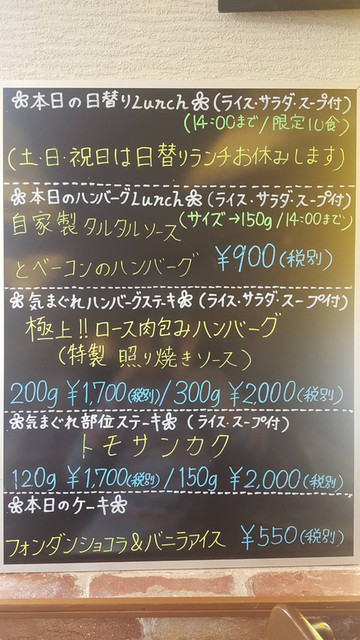 ❀本日の日替りLunch❀(ライス・サラダ・スープ付)
(14:00まで/限定10食)
(土・日・祝日は日替りランチお休みします)
❀本日のハンバーグLunch❀(ライス・サラダ・スープ付)
自家製タルタルソース (サイズ→150g/14:00まで)
とベーコンのハンバーグ ¥900(税別)
❀気まぐれハンバーグステーキ❀(ライス・サラダ・スープ付)
極上!!ロース肉包みハンバーグ
(特製 照り焼きソース)
200g ¥1,700(税別)/300g ¥2,000(税別)
❀気まぐれ部位ステーキ❀(ライス・スープ付)
トモサンカク
120g ¥1,700(税別)/150g ¥2,000(税別)
❀本日のケーキ❀
フォンダンショコラ&バニラアイス ¥550(税別)